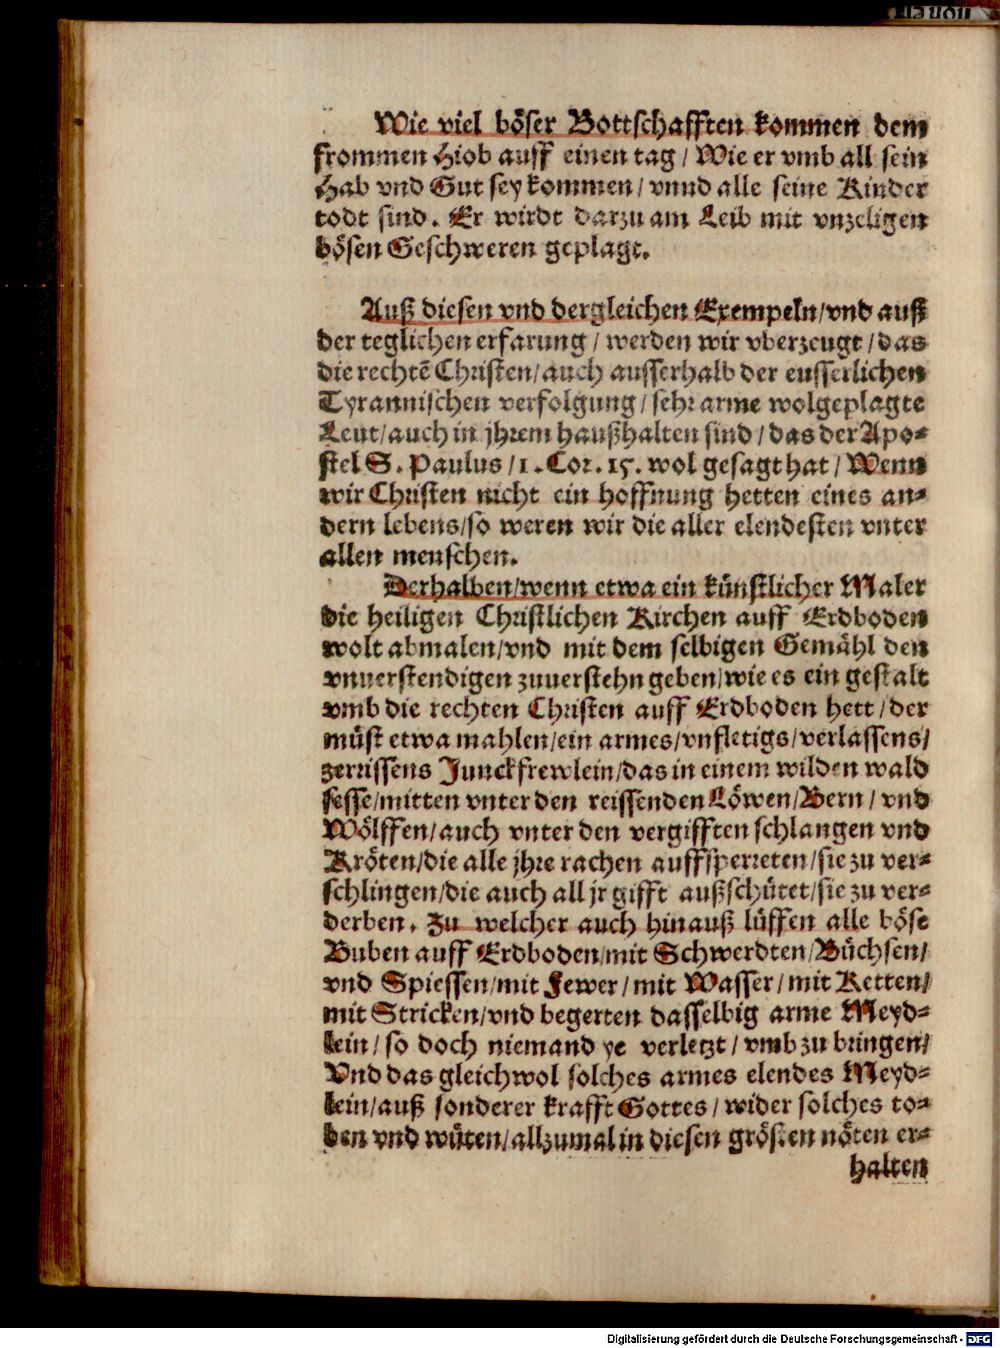 Wie viel böser Bottschafften kommen dem
frommen Hiob auff einen tag / Wie er vmb all sein
Hab vnd Gut sey kommen / vnnd alle seine Kinder
todt sind. Er wirdt darzu am Leib mit vnzeligen
bösen Geschweren geplagt.
Auß diesen vnd dergleichen Exempeln/vnd auff
der teglichen erfarung / werden wir vberzeugt / das
die rechtē Christen/auch ausserhalb der eusserlichen
Tyrannischen verfolgung/sehr arme wolgeplagte
Leut/auch in jhrem haußhalten sind/das der Apo=
stel S. Paulus /1. Cor. 15. wol gesagt hat/ Wenn
wir Christen nicht ein hoffnung hetten eines an=
dern lebens/so weren wir die aller elendesten vnter
allen menschen.
Derhalben/wenn etwa ein künstlicher Maler
die heiligen Christlichen Kirchen auff Erdboden
wolt abmalen/vnd mit dem selbigen Gemähl den
vnuerstendigen zuuerstehn geben/wie es ein gestalt
vmb die rechten Christen auff Erdboden hett/der
müst etwa mahlen/ein armes/vnfletigs/verlassens/
zerrissens Junckfrewlein/das in einem wilden wald
sesse/mitten vnter den reissenden Löwen/Bern/ vnd
Wölffen/auch vnter den vergifften schlangen vnd
Kröten/die alle jhre rachen auffsperreten/sie zu ver=
schlingen/die auch all jr gifft außschütet/sie zu ver=
derben. Zu welcher auch hinauß lüffen alle böse
Buben auff Erdboden/mit Schwerdten/Büchsen/
vnd Spiessen/mit Fewer/mit Wasser/mit Ketten/
mit Stricken/vnd begerten dasselbig arme Meyd=
lein/ so doch niemand ye verletzt/ vmb zu bringen/
Vnd das gleichwol solches armes elendes Meyd=
lein/auß sonderer krafft Gottes/ wider solches to=
ben vnd wüten/allzumal in diesen grösten nöten er=
halten
Digitalisierung gefördert durch die Deutsche Forschungsgemeinschaft - DFG